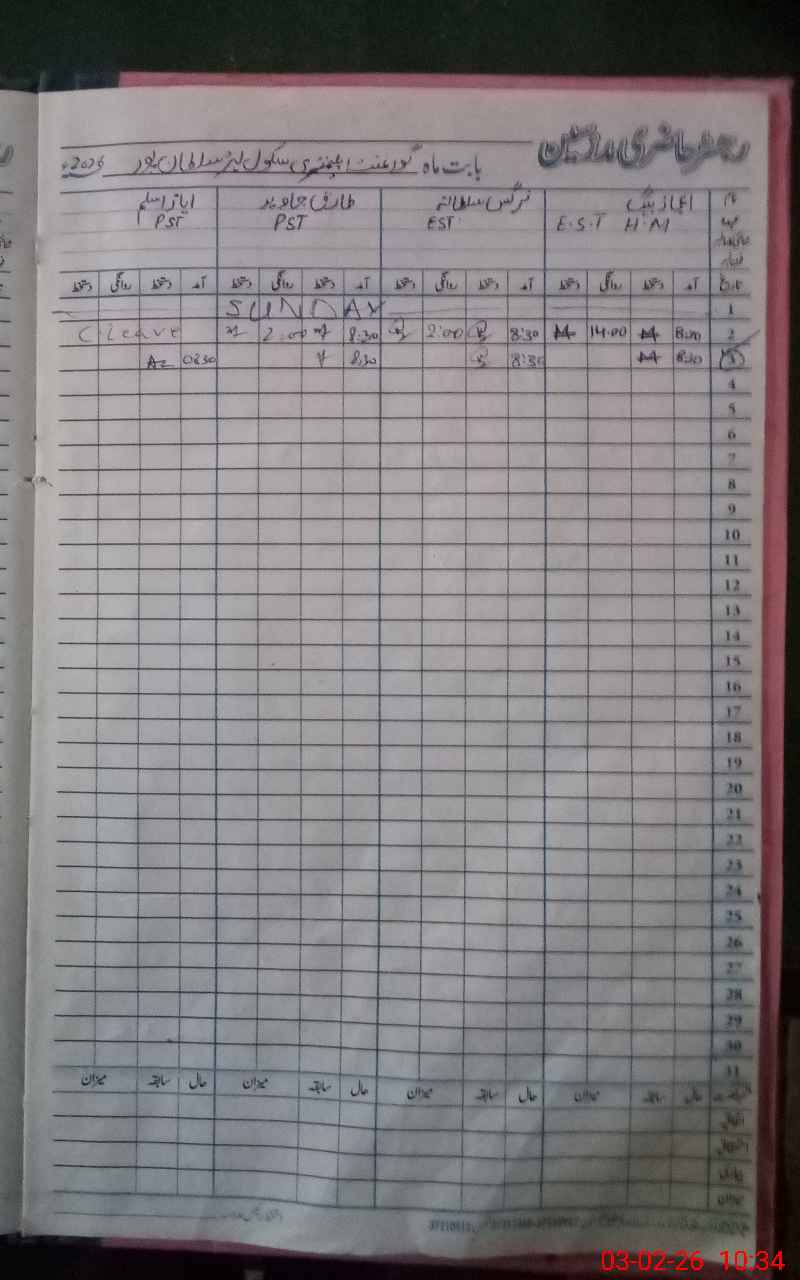 رجسٹر حاضری مدرسین
بابت ماہ گورنمنٹ ایلیمنٹری سکول سلطان پور 2026ء
نام اعجاز بیگ نرگس سلطانہ طارق جاوید ایاز اسلم
عہدہ H.M E.S.T EST PST PST
تاریخ آمد دستخط روانگی دستخط آمد دستخط روانگی دستخط آمد دستخط روانگی دستخط آمد دستخط روانگی دستخط
1 SUNDAY
2 8:30 14:00 8:30 2:00 8:30 2:00 C.leave
3 8:30 8:30 8:30 0830 Az
4
5
6
7
8
9
10
11
12
13
14
15
16
17
18
19
20
21
22
23
24
25
26
27
28
29
30
31
حال سابقہ میزان حال سابقہ میزان حال سابقہ میزان حال سابقہ میزان
اتفاقیہ
میزان
03-02-26 10:34